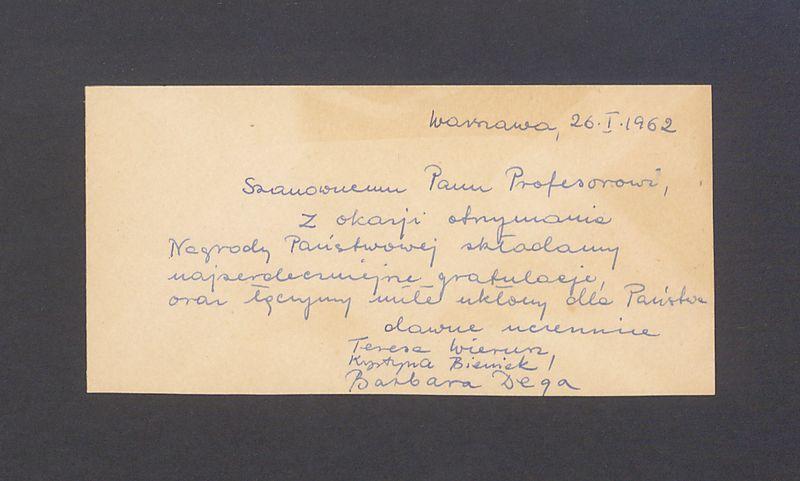 Warszawa, 26.I.1962
Szanownemu Panu Profesorowi,
Z okazji otrzymania
Nagrody Państwowej składamy
najserdeczniejsze gratulacje,
oraz łączymy miłe ukłony dla Państwa
dawne uczennice
Teresa Wierusz,
Krystyna Bieniek,
Barbara Dega